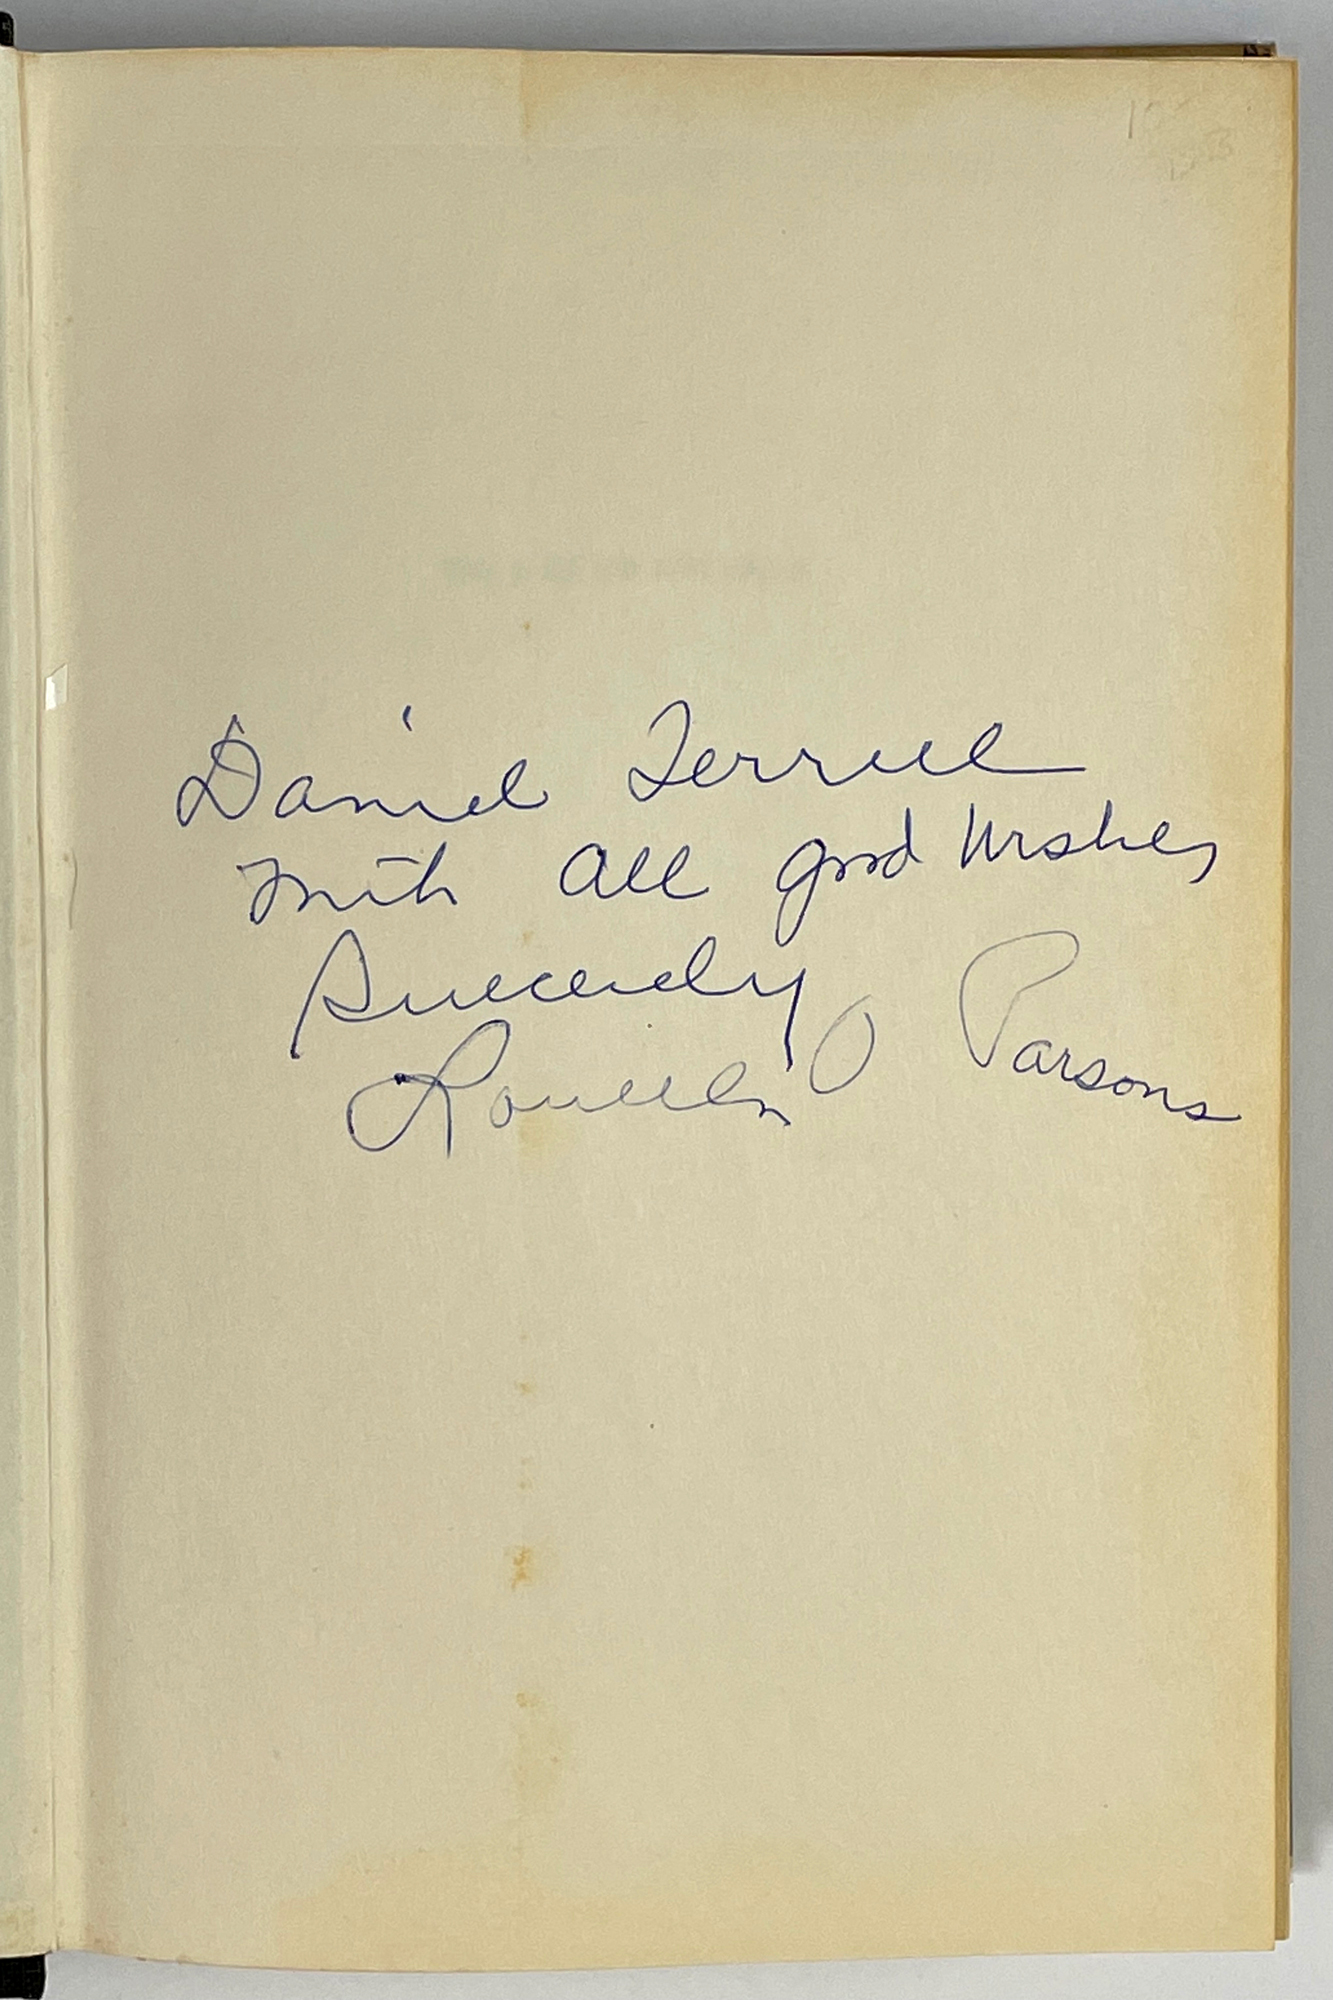 Daniel Terrill
with all good wishes
Sincerely
Louella O Parsons